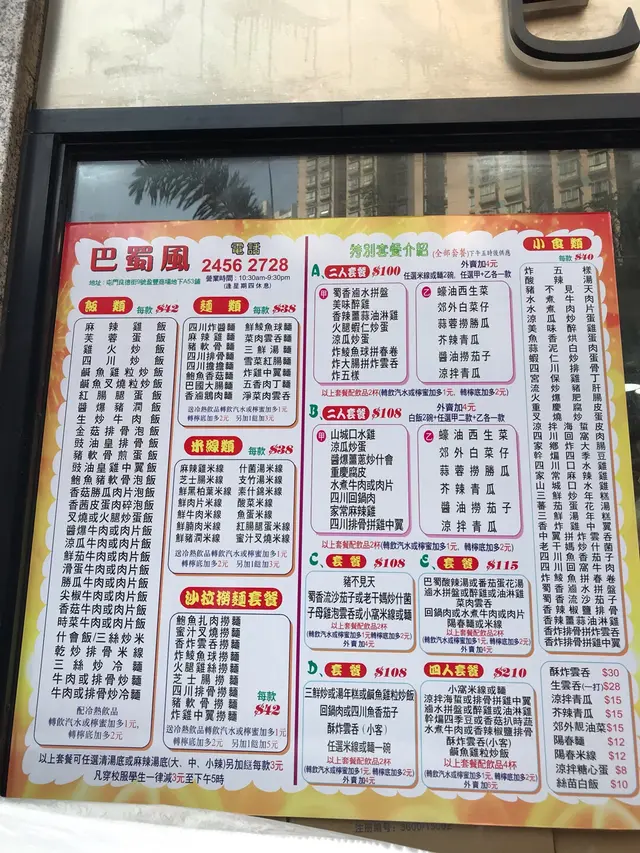 巴蜀風
電話
2456 2728
地址：屯門良德街9號盈豐商場地下A53舖
營業時間：10:30am-9:30pm
(逢星期四休息)
飯類 每款$42
麻辣雞飯
芙蓉蛋飯
雞火炒飯
四川炒飯
鹹魚雞粒炒飯
鹹魚叉燒粒炒飯
紅腸腿蛋飯
醬爆豬潤飯
生炒牛肉飯
金菇排骨泡飯
豉油皇排骨飯
豬軟骨煎蛋飯
豉油皇雞中翼飯
鮑魚豬軟骨泡飯
香菇勝瓜肉片泡飯
香茜皮蛋肉碎泡飯
叉燒或火腿炒蛋飯
醬爆牛肉或肉片飯
涼瓜牛肉或肉片飯
鮮茄牛肉或肉片飯
滑蛋牛肉或肉片飯
勝瓜牛肉或肉片飯
尖椒牛肉或肉片飯
香菇牛肉或肉片飯
時菜牛肉或肉片飯
什會飯/三絲炒米
乾炒排骨米線
三絲炒冷麵
牛肉或排骨炒麵
牛肉或排骨炒冷麵
配冷熱飲品
轉飲汽水或檸蜜加多1元,
轉檸底加多2元
麵類 每款$38
四川炸醬麵
麻辣雞麵
豬軟骨麵
四川排骨麵
四川擔擔麵
鮑魚香菇麵
巴國大腸麵
香滷鵝肉麵
鮮鯪魚球麵
菜肉雲吞麵
三鮮湯麵
雪菜紅腸麵
炸雞中翼麵
五香肉丁麵
淨菜肉雲吞
送冷熱飲品轉飲汽水或檸蜜加多1元
轉檸底加多2元 另加1餸加多3元
米線類 每款$38
麻辣雞米線
芝士腸米線
鮮黑柏葉米線
鮮肉片米線
鮮牛肉米線
鮮腩肉米線
鮮豬潤米線
什菌湯米線
支竹湯米線
素什錦米線
酸菜米線
魚蛋米線
紅腸腿蛋米線
蜜汁叉燒米線
送冷熱飲品轉飲汽水或檸蜜加多1元
轉檸底加多2元 另加1餸加多3元
沙拉撈麵套餐
鮑魚扎肉撈麵
蜜汁叉燒撈麵
香炸雲吞撈麵
炸鯪魚球撈麵
火腿雞絲撈麵
芝士腸撈麵
四川排骨撈麵
豬軟骨撈麵
炸雞中翼撈麵
每款
$42
送冷熱飲品轉飲汽水或檸蜜加多1元
轉檸底加多2元 另加1餸加多5元
以上套餐可任選清湯底或麻辣湯底(大、中、小辣)另加餸每款3元
凡穿校服學生一律減3元至下午5時
特別套餐介紹 (全部套餐)下午五時後供應
外賣加4元
A 二人套餐 $100 任選米線或麵2碗、任選甲+乙各一款
甲
蜀香滷水拼盤
美味醉雞
香辣薑蒜油淋雞
火腿蝦仁炒蛋
涼瓜炒蛋
炸鯪魚球拼春卷
炸大腸拼炸雲吞
炸五樣
乙
蠔油西生菜
郊外白菜仔
蒜蓉拼勝瓜
芥辣青瓜
醬油撈茄子
涼拌青瓜
以上套餐配飲品2杯(轉飲汽水或檸蜜加多1元、轉檸底加多2元)
B 二人套餐 $108
外賣加4元
白飯2碗+任選甲二款+乙各一款
甲
山城口水雞
涼瓜炒蛋
醬爆薑蔥炒什會
重慶腐皮
水煮牛肉或肉片
四川回鍋肉
家常麻辣雞
四川排骨拼雞中翼
乙
蠔油西生菜
郊外白菜仔
蒜蓉撈勝瓜
芥辣青瓜
醬油撈茄子
涼拌青瓜
以上套餐配飲品2杯(轉飲汽水或檸蜜加多1元、轉檸底加多2元)
C 套餐 $108
豬不見天
蜀香流沙茄子或老干媽炒什菌
子母雞泡雲吞或小窩米線或麵
以上套餐配飲品2杯
(轉飲汽水或檸蜜加多1元、轉檸底加多2元)
外賣加4元
套餐 $115
巴蜀酸辣湯或番茄蛋花湯
滷水拼盤或醉雞或油淋雞
菜肉雲吞
回鍋肉或水煮牛肉或肉片
陽春麵或米線
以上套餐配飲品2杯
(轉飲汽水或檸蜜加多1元、轉檸底加多2元)
外賣加4元
D 套餐 $108
三鮮炒或湯年糕或鹹魚雞粒炒飯
回鍋肉或四川魚香茄子
酥炸雲吞(小客)
任選米線或麵一碗
以上套餐配飲品2杯
(轉飲汽水或檸蜜加多1元、轉檸底加多2元)
外賣加4元
四人套餐 $210
小窩米線或麵
涼拌海蜇或排骨或雞中翼
滷水拼盤或醉雞或油淋雞
幹煸四季豆或香菇扒時蔬
水煮牛肉或香辣椒鹽排骨
酥炸雲吞(小客)
鹹魚雞粒炒飯
以上套餐配飲品4杯
(轉飲汽水或檸蜜加多1元、轉檸底加多2元)
小食類
每款 $40
酥炸雲吞 $30
生雲吞(一打) $28
涼拌青瓜 $15
芥辣青瓜 $15
郊外靚油菜 $15
陽春麵 $12
陽春米線 $12
涼拌糖心蛋 $8
絲苗白飯 $10